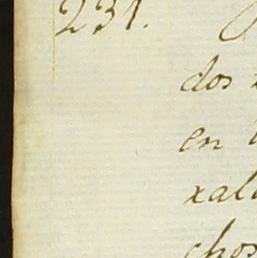 231.
dos
en
xal
chos